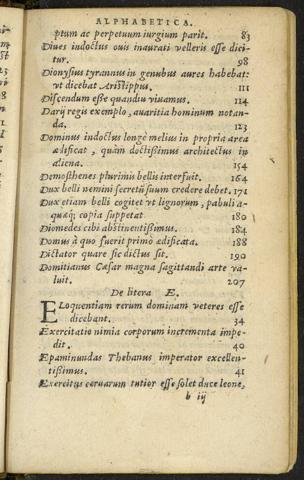 ALPHABETICA.
ptum ac perpetuum iurgium parit. 83
Diues indoctus ouis inaurati velleris esse dici
tur. 98
Dionysius tyrannus in genubus aures habebat:
vt dicebat Aristippus. 111
Discendum esse quandiu viuamus. 114
Darij regis exemplo, auaritia hominum notan-
da. 123
Dominus indoctus longè melius in propria area
ædificat, quàm doctissimus architectus in
aliena. 154
Demosthenes plurimis bellis interfuit. 164
Dux belli nemini secretū suum credere debet. 171
Dux etiam belli cogitet vt lignorum, pabuli a-
quæq; copia suppetat 180
Diomedes cibi abstinentissimus. 184
Domus à quo fuerit primò ædificata. 188
Dictator quare sic dictus sit. 190
Domitianus Cæsar magna sagittandi arte va-
luit. 207
De litera E.
ELoquentiam rerum dominam veteres esse
dicebant. 34
Exercitatio nimia corporum incrementa impe-
dit. 40
Epaminundas Thebanus imperator excellen-
tissimus. 41
Exercitus ceruarum tutior esse solet duce leone,
b iij